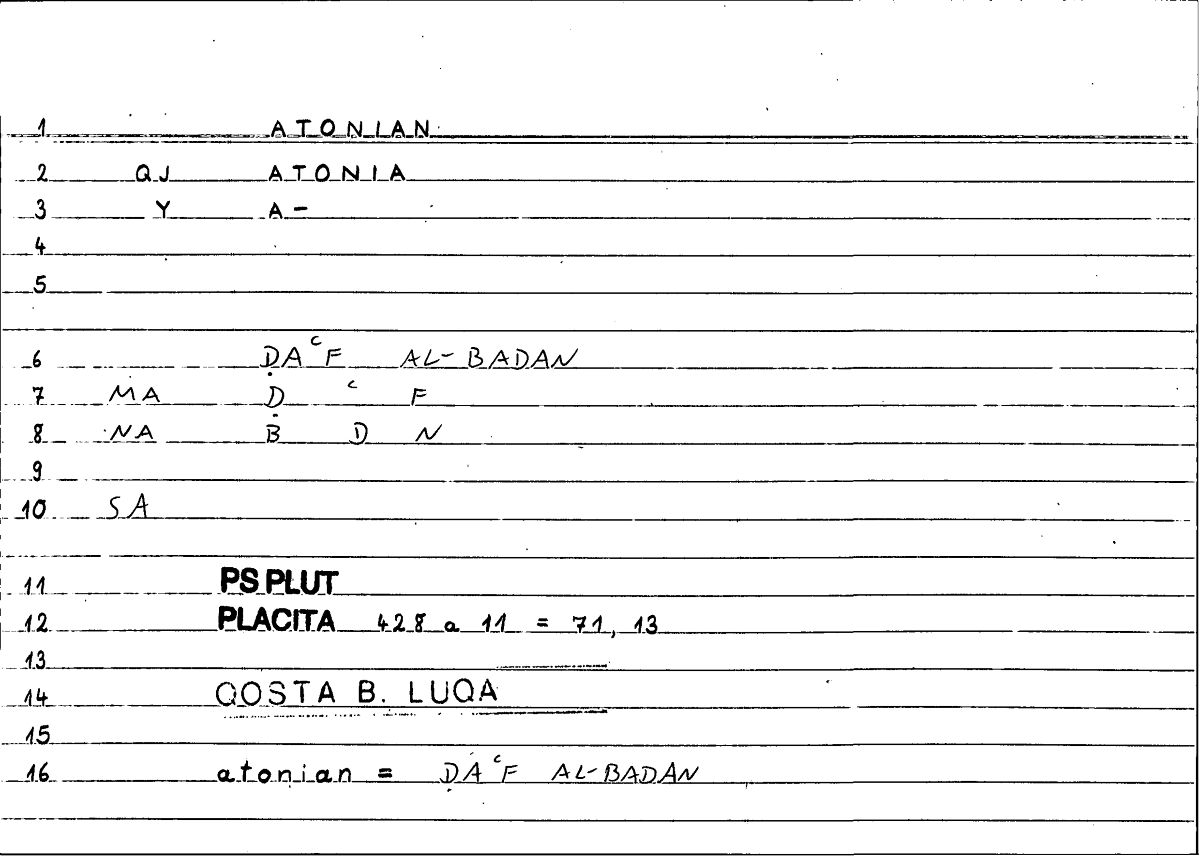 1 ATONIAN
2 QJ ATONIA
3 Y A-
4
5
6 ḌAᶜF AL-BADAN
7 MA Ḍ ᶜ F
8 NA B D N
9
10 SA
11 PS PLUT
12 PLACITA 428 a 11 = 71, 13
13
14 QOSTA B. LUQA
15
16 atonian = ḌAᶜF AL-BADAN